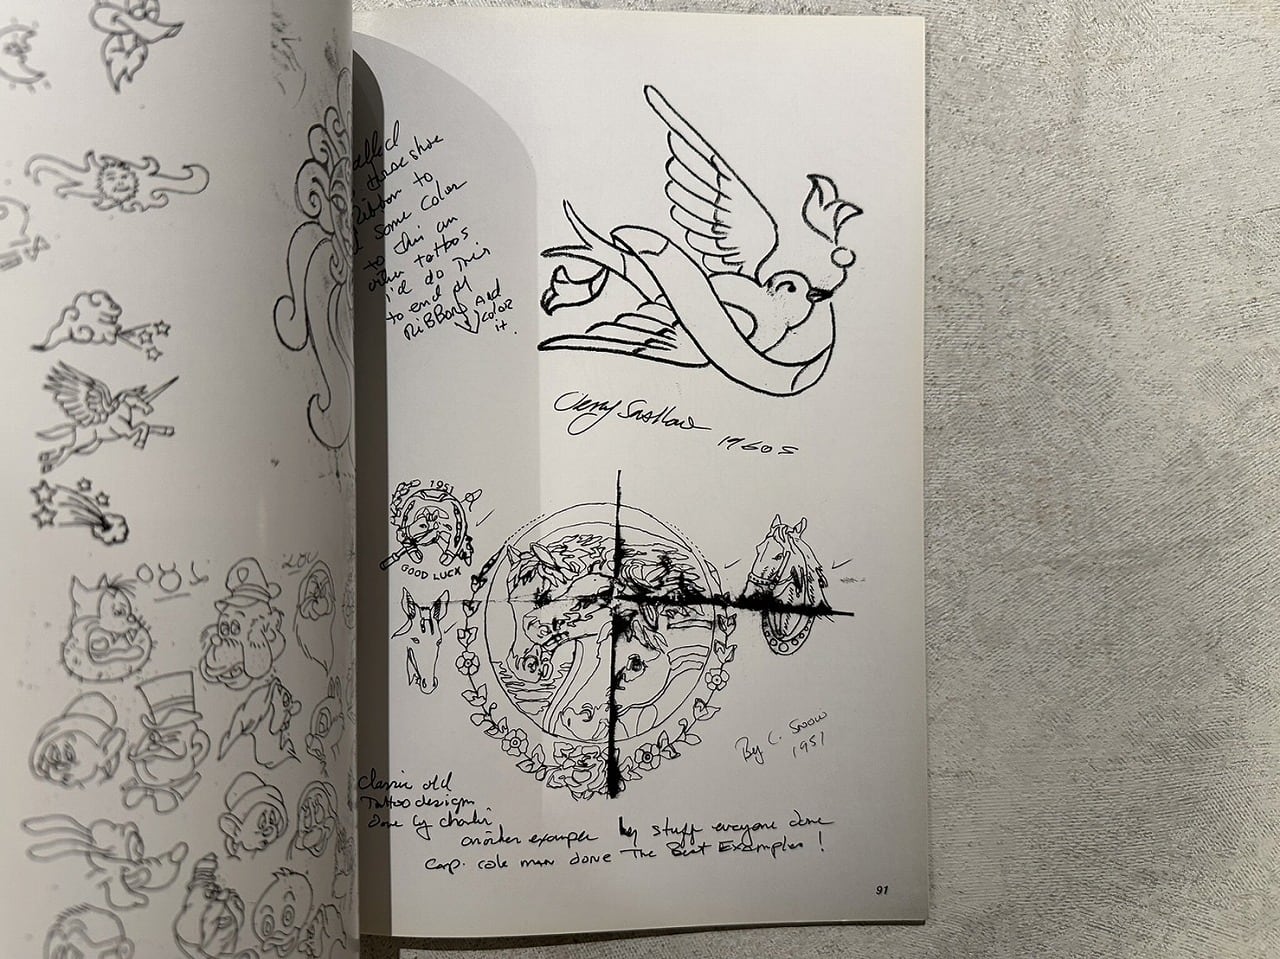 Horseshoe
Ribbon to
some color
to this an
other tattoos
I'd do this
to end of
RiBBons And
color
it.
1960s
1951
GOOD LUCK
By C. Snow
1951
Classic old
Tattoo design
done by Charlie
another example by stuff everyone done
Cap. cole man done The Best Examples!
91